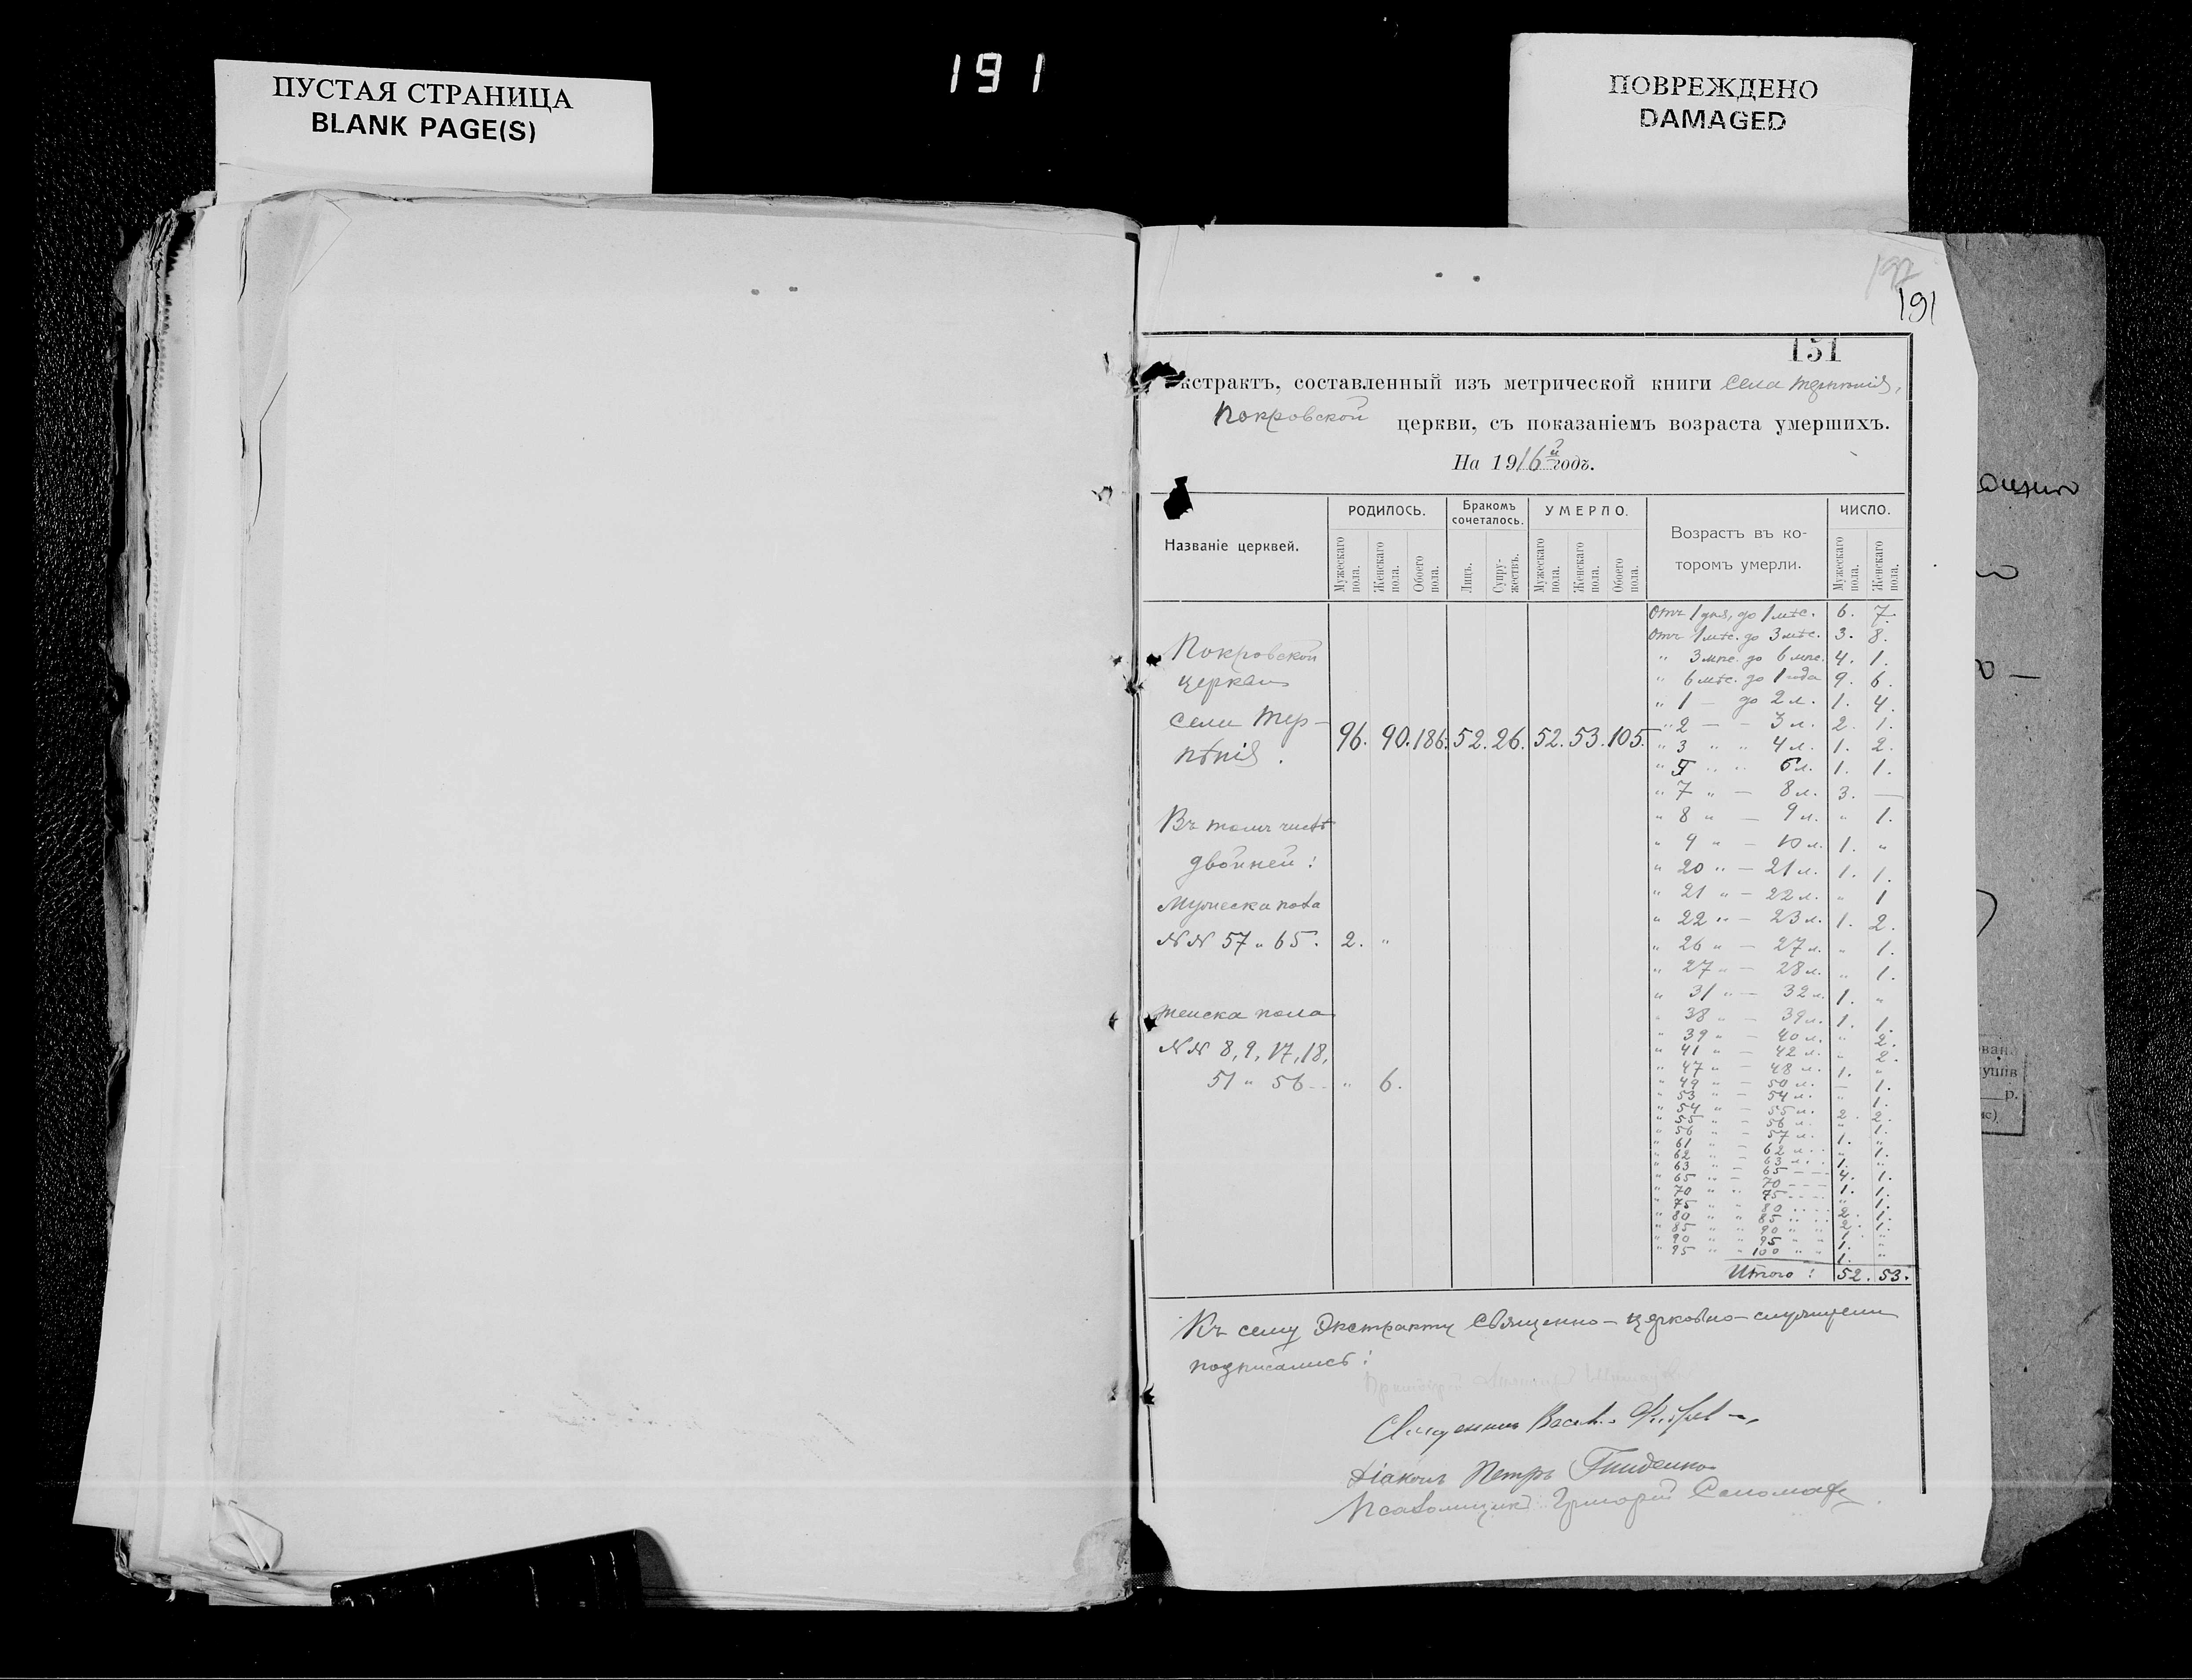 191
ПУСТАЯ СТРАНИЦА
BLANK PAGE(S)
ПОВРЕЖДЕНО
DAMAGED
192
191
151
кстрактъ, составленный изъ метрической книги села Терпѣнія,
Покровской церкви, съ показаніемъ возраста умершихъ.
На 1916й годъ.
Названіе церквей.
РОДИЛОСЬ.
Бракомъ сочеталось.
УМЕРЛО.
Возрастъ въ которомъ умерли.
ЧИСЛО.
Мужескаго пола.
Женскаго пола.
Обоего пола.
Лицъ.
Супружествъ.
Мужескаго пола.
Женскаго пола.
Обоего пола.
Мужескаго пола.
Женскаго пола.
Покровской
церкви
села Тер-
пѣнія.
96. 90. 186. 52. 26. 52. 53. 105.
Въ томъ числѣ
двойней:
Мужеска пола
№№ 57 и 65. 2. "
Женска пола
№№ 8, 9, 17, 18,
51 и 56 -- " 6.
Отъ 1 дня, до 1 мѣс. 6. 7.
Отъ 1 мѣс. до 3 мѣс. 3. 8.
" 3 мѣс. до 6 мѣс. 4. 1.
" 6 мѣс. до 1 года 9. 6.
" 1 — до 2 л. 1. 4.
" 2 — — 3 л. 2. 1.
" 3 " " 4 л. 1. 2.
" 5 " " 6 л. 1. 1.
" 7 " — 8 л. 3. —
" 8 " — 9 л. " 1.
" 9 " — 10 л. 1. "
" 20 " — 21 л. 1. 1.
" 21 " — 22 л. " 1
" 22 " — 23 л. 1. 2.
" 26 " — 27 л. " 1.
" 27 " — 28 л. " 1.
" 31 " — 32 л. 1. "
" 38 " — 39 л. 1. 1.
" 39 " — 40 л. " 2.
" 41 " — 42 л. " 2.
" 47 " — 48 л. 1. "
" 49 " — 50 л. — 1.
" 53 " — 54 л. " 1.
" 54 " — 55 л. 2. 2.
" 55 " — 56 л. " 1.
" 56 " — 57 л. 1. "
" 61 " — 62 л. " 1.
" 62 " — 63 л. 1. "
" 63 " — 65 — — 4. 1.
" 65 " — 70 — — 1. 1.
" 70 " " 75 " 1.
" 75 " " 80 2. 1.
" 80 " " 85 2. 1.
" 85 " " 90 1. "
" 90 " " 95 1. "
" 95 " " 100 " " 1. "
Итого: 52. 53.
Къ сему Экстракту священно-церковно-служители
подписались:
Священникъ
Діаконъ Петръ Гниденко
Псаломщикъ Григорій